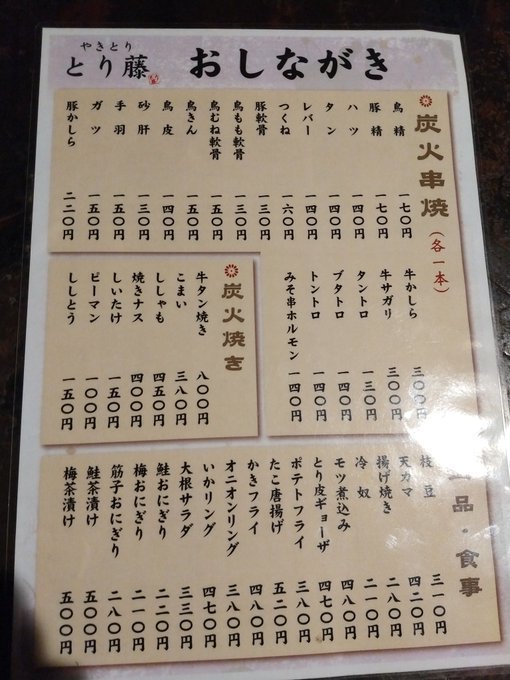 やきとり
とり藤
おしながき
炭火串焼(各一本)
鳥精 一七〇円
豚精 一七〇円
ハツ 一四〇円
タン 一四〇円
レバー 一四〇円
つくね 一六〇円
豚軟骨 一三〇円
鳥もも軟骨 一三〇円
鳥むね軟骨 一五〇円
鳥きん 一五〇円
鳥皮 一四〇円
砂肝 一三〇円
手羽 一五〇円
ガツ 一五〇円
豚かしら 二二〇円
牛かしら 三〇〇円
牛サガリ 三〇〇円
タントロ 一三〇円
ブタトロ 一四〇円
トントロ 一四〇円
みそ串ホルモン 一四〇円
炭火焼き
牛タン焼き 八〇〇円
こまい 三八〇円
ししゃも 四五〇円
焼きナス 四〇〇円
しいたけ 一五〇円
ピーマン 一〇〇円
ししとう 一五〇円
一品・食事
枝豆 三一〇円
天カマ 四二〇円
揚げ焼き 二八〇円
冷奴 二一〇円
モツ煮込み 四八〇円
とり皮ギョーザ 四七〇円
ポテトフライ 三八〇円
たこ唐揚げ 五二〇円
かきフライ 四八〇円
オニオンリング 三八〇円
いかリング 四七〇円
大根サラダ 三三〇円
鮭おにぎり 二二〇円
梅おにぎり 二一〇円
筋子おにぎり 二八〇円
鮭茶漬け 五〇〇円
梅茶漬け 五〇〇円